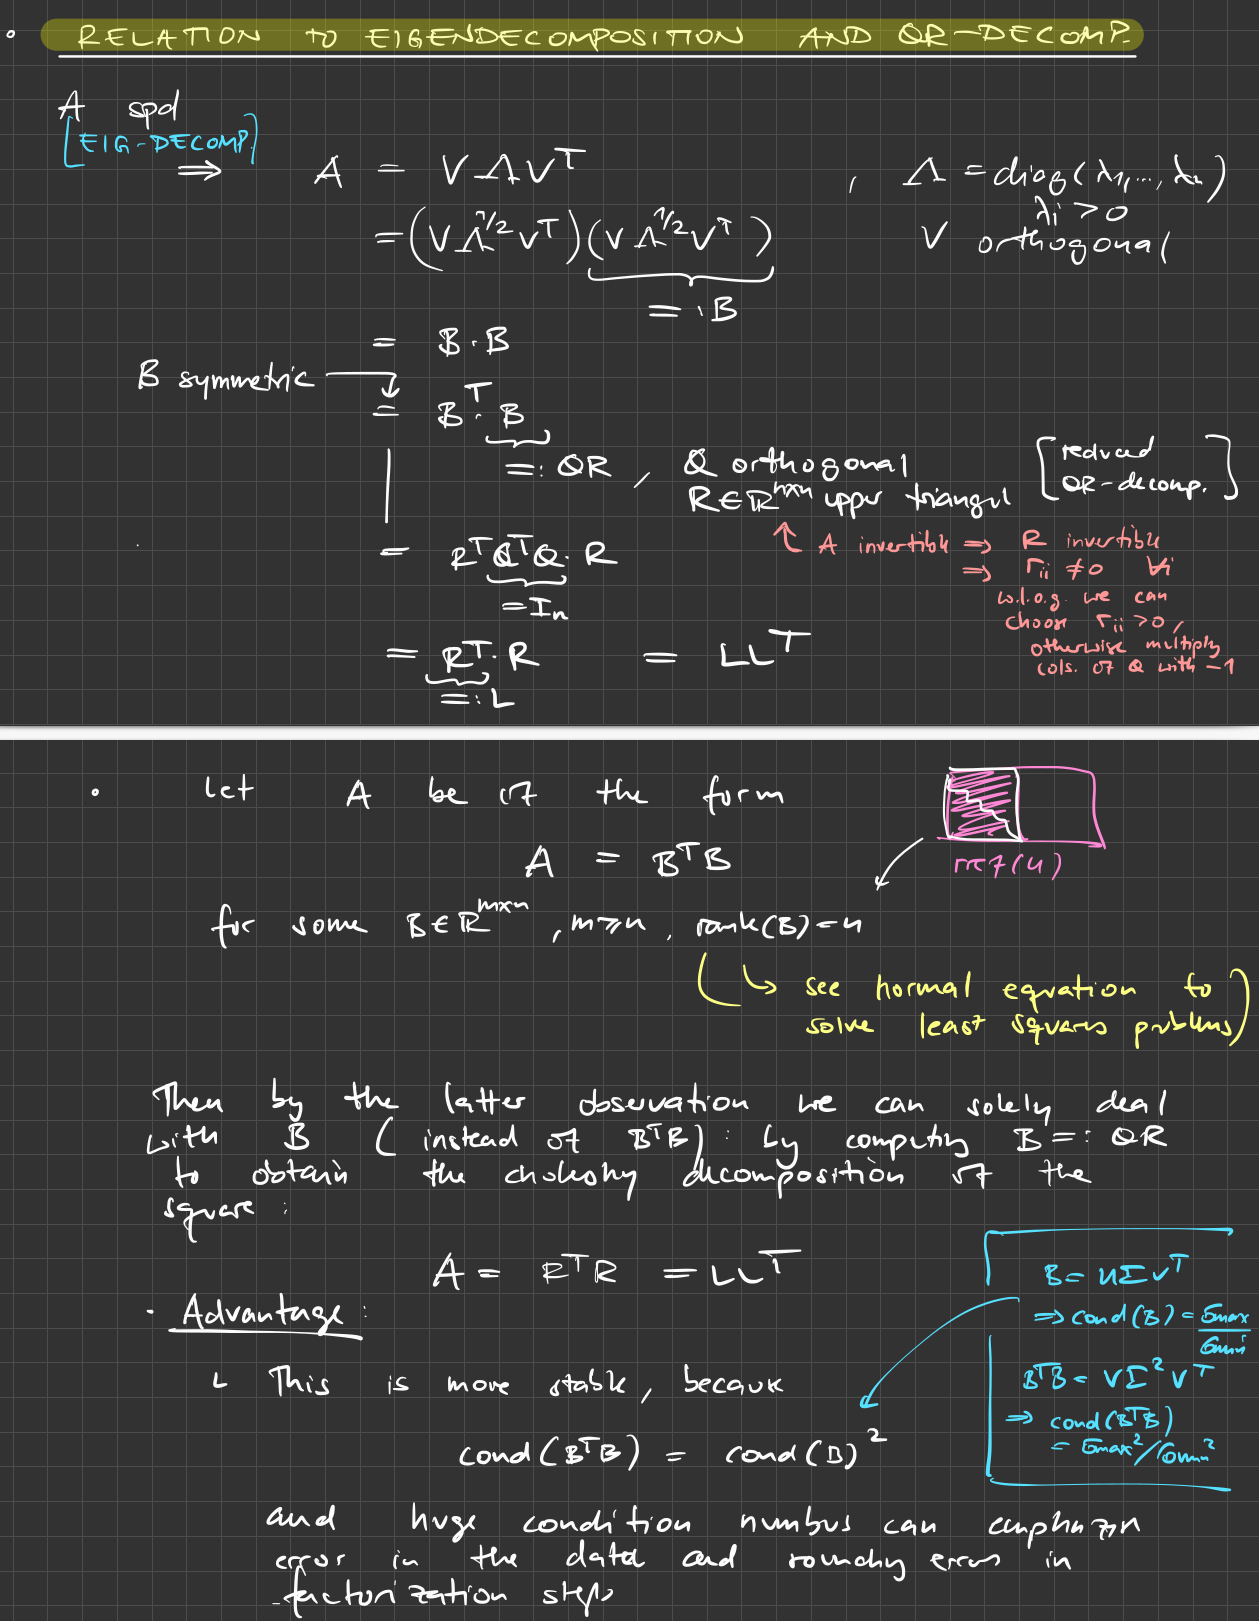 • RELATION TO EIGENDECOMPOSITION AND QR-DECOMP.
A spd
[EIG-DECOMP.]
⇒ A = VΛV^T , Λ = diag(λ₁,...,λₙ)
λᵢ > 0
= (VΛ^{1/2}V^T)(VΛ^{1/2}V^T) V orthogonal
=: B
= B·B
B symmetric
= B^T·B
=: QR, Q orthogonal [reduced
R∈ℝ^{n×n} upper triangul QR-decomp.]
↑ A invertible ⇒ R invertible
= R^T Q^T Q · R ⇒ rᵢᵢ ≠ 0 ∀i
= Iₙ w.l.o.g. we can
choose rᵢᵢ > 0,
= R^T·R = LL^T otherwise multiply
cols. of Q with -1
=: L
• Let A be of the form
A = B^T B
for some B∈ℝ^{m×n}, m≥n, rank(B)=n
(↳ see normal equation to
solve least squares problems)
Then by the latter observation we can solely deal
with B (instead of B^T B): by computing B =: QR
to obtain the cholesky decomposition of the
square:
A = R^T R = LL^T
B = UΣV^T
• Advantage:
⇒ cond(B) = σmax/σmin
↳ This is more stable, because
B^T B = VΣ²V^T
⇒ cond(B^T B)
= σmax²/σmin²
cond(B^T B) = cond(B)²
and huge condition numbers can
error in the data and rounding errors in
factorization steps